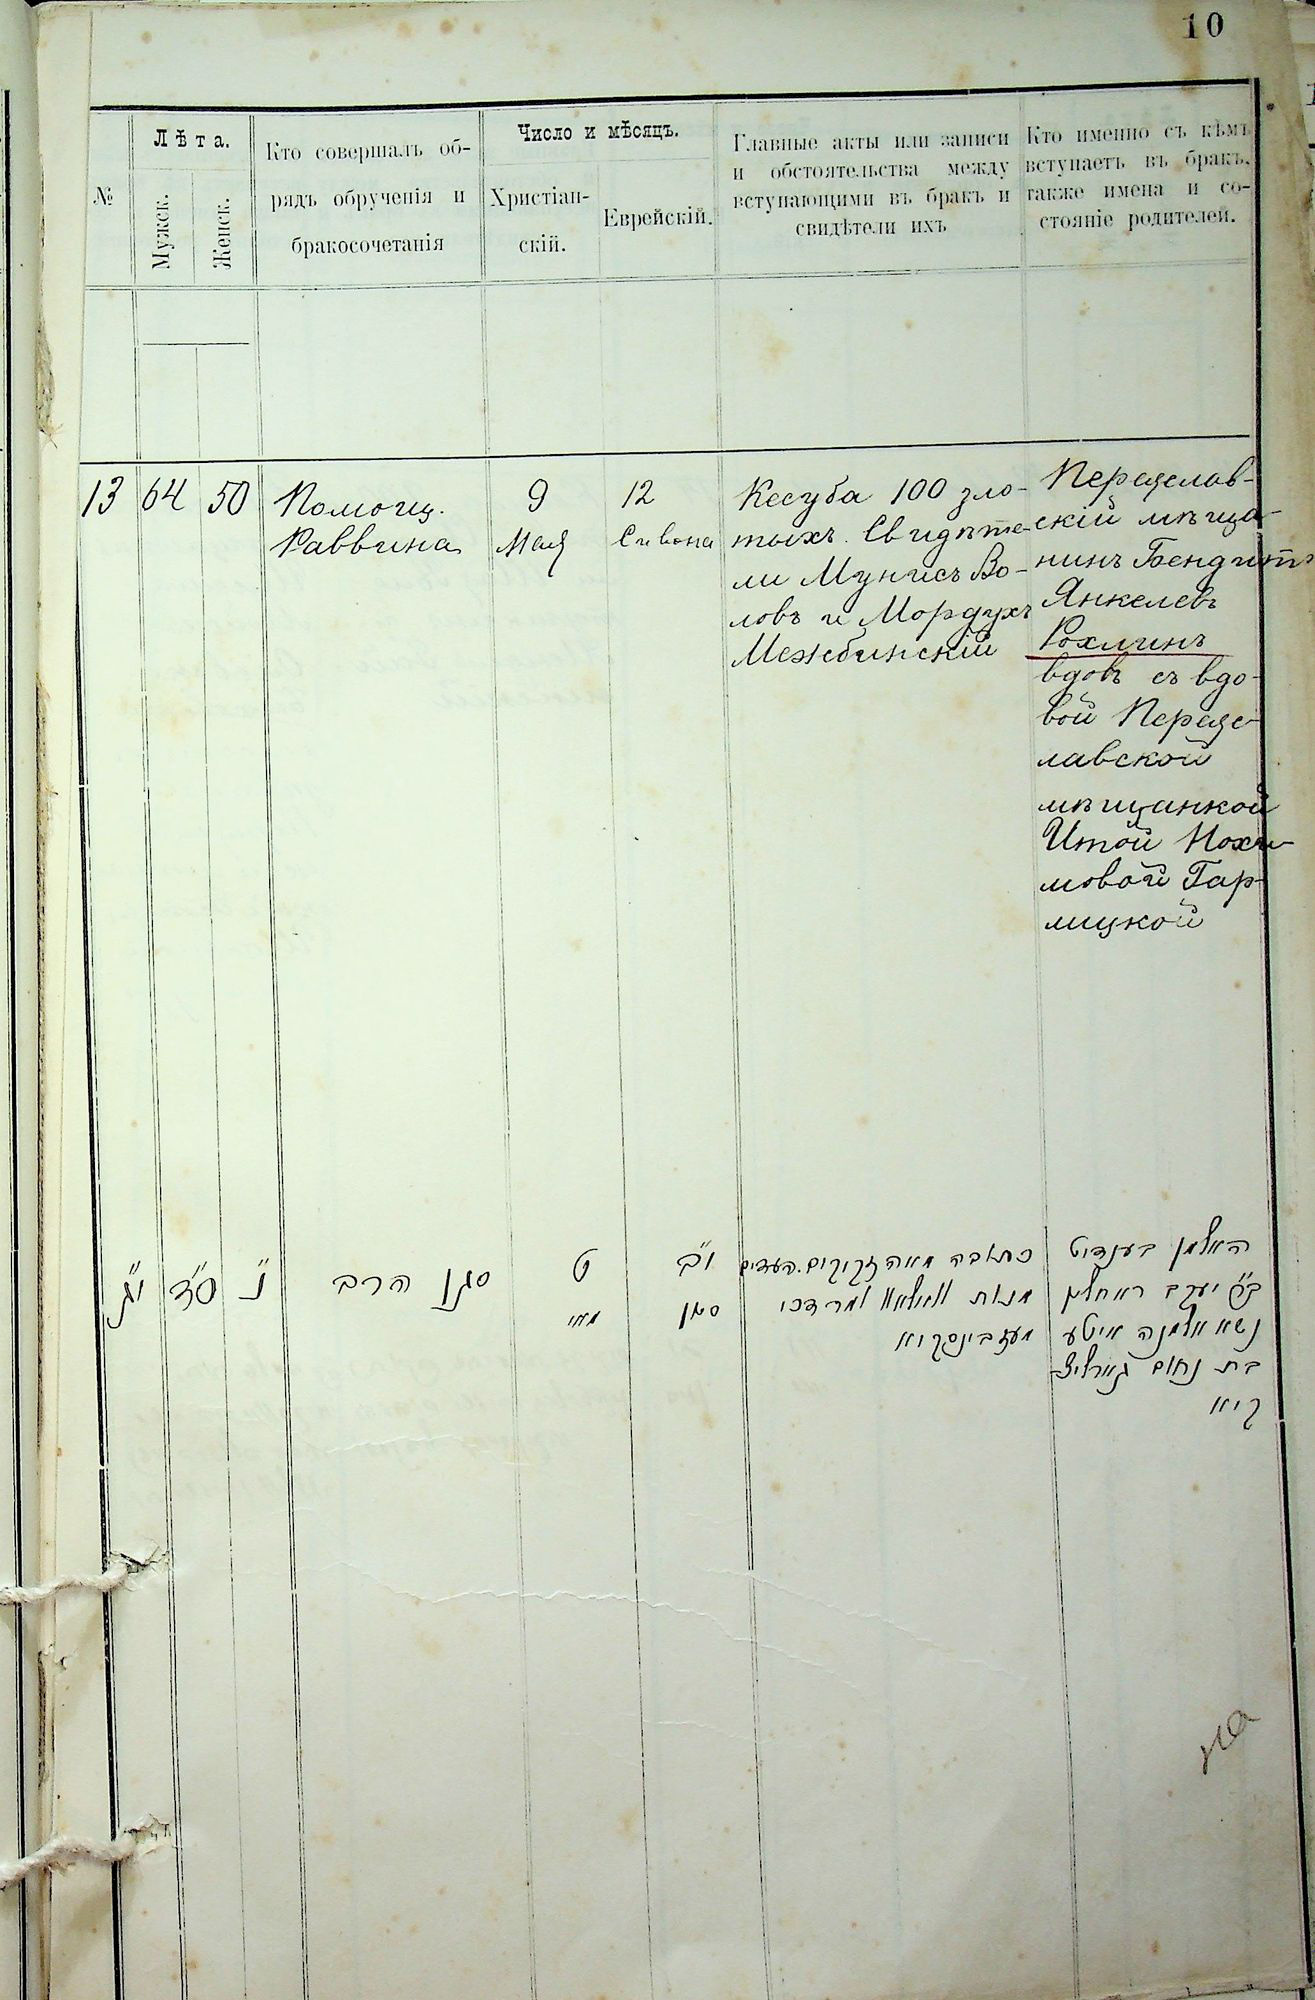 10
№
Лѣта.
Мужск.
Женск.
Кто совершалъ об-
рядъ обрученія и
бракосочетанія
Число и мѣсяцъ.
Христіан-
скій.
Еврейскій.
Главные акты или записи
и обстоятельства между
вступающими въ бракъ и
свидѣтели ихъ
Кто именно съ кѣмъ
вступаетъ въ бракъ,
также имена и со-
стояніе родителей.
13
64
50
Помощ.
Раввина
9
Мая
12
Сивона
Кесуба 100 зло-
тыхъ. Свидѣте-
ли Мунисъ Во-
ловъ и Мордухъ
Межбинскій
Переяслав-
скій мѣща-
нинъ Бендитъ
Янкелевъ
Рохлинъ
вдовъ съ вдо-
вой Переяс-
лавской
мѣщанкой
Итой Нохи-
мовой Гар-
лицкой
י"ג
ס"ד
נ'
סגן הרב
ט
מאי
י"ב
סיון
כתובה מאה זקוקים. העדים
ומרדכי
מעזבינסקיא
האלמן בענדיט
יעקב ראחלין
נשא אלמנה איטע
בת נחום גארליצ
קיא